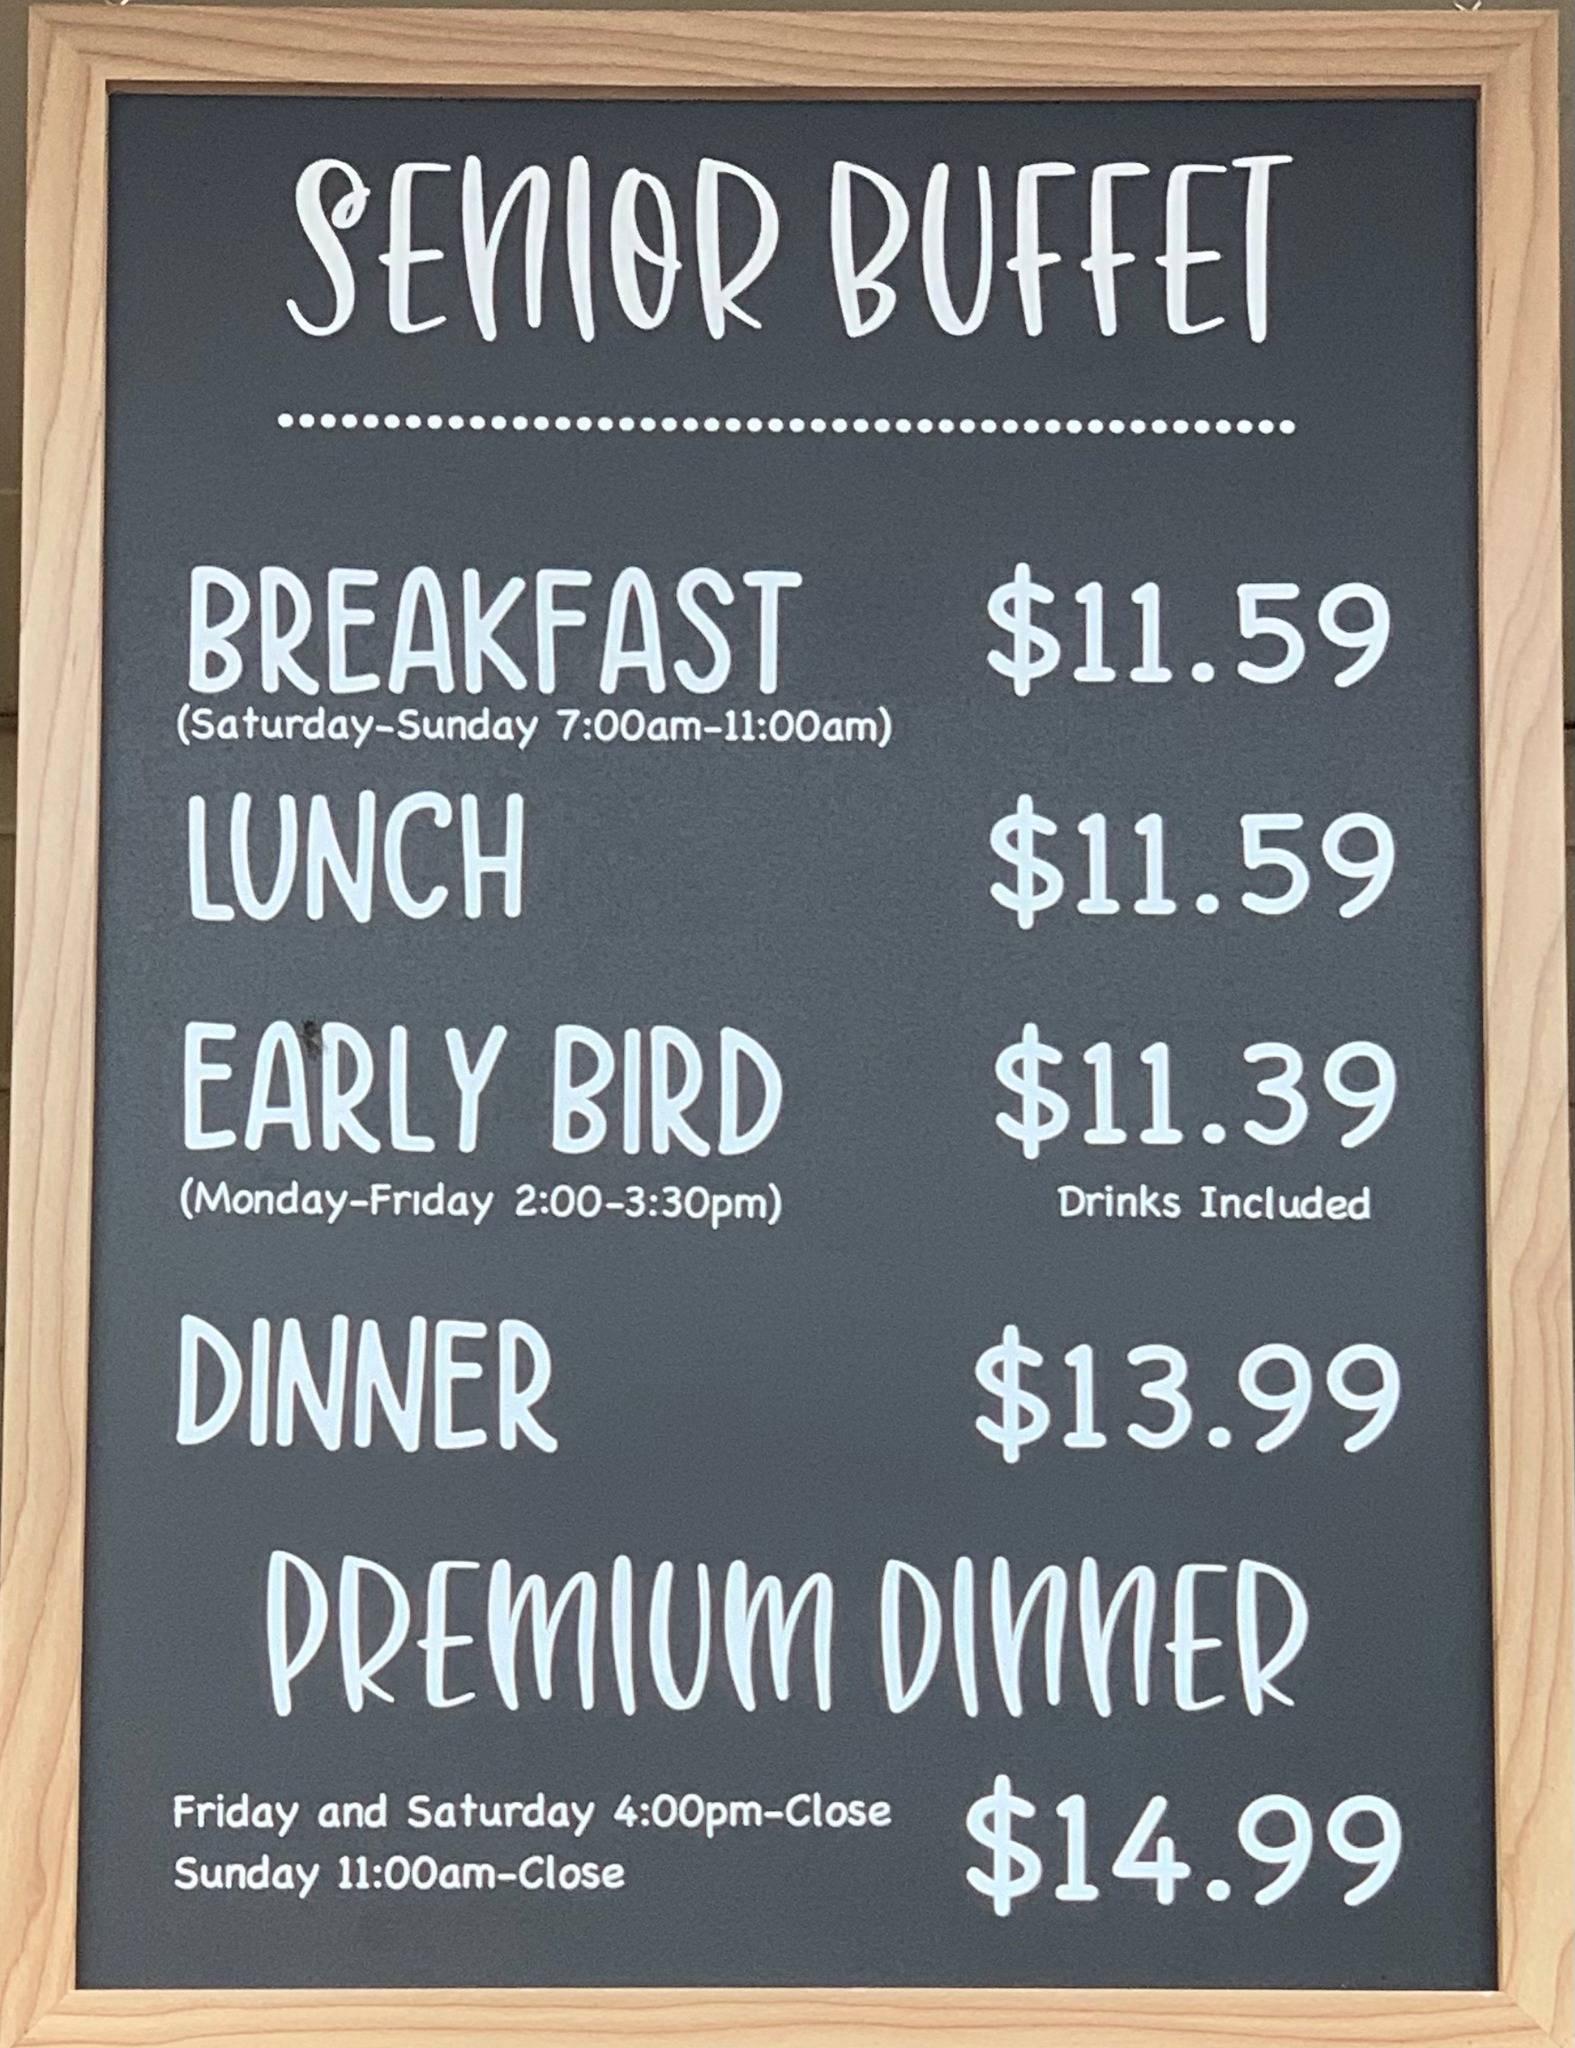 SENIOR BUFFET
BREAKFAST $11.59
(Saturday-Sunday 7:00am-11:00am)
LUNCH $11.59
EARLY BIRD $11.39
(Monday-Friday 2:00-3:30pm) Drinks Included
DINNER $13.99
PREMIUM DINNER
Friday and Saturday 4:00pm-Close $14.99
Sunday 11:00am-Close